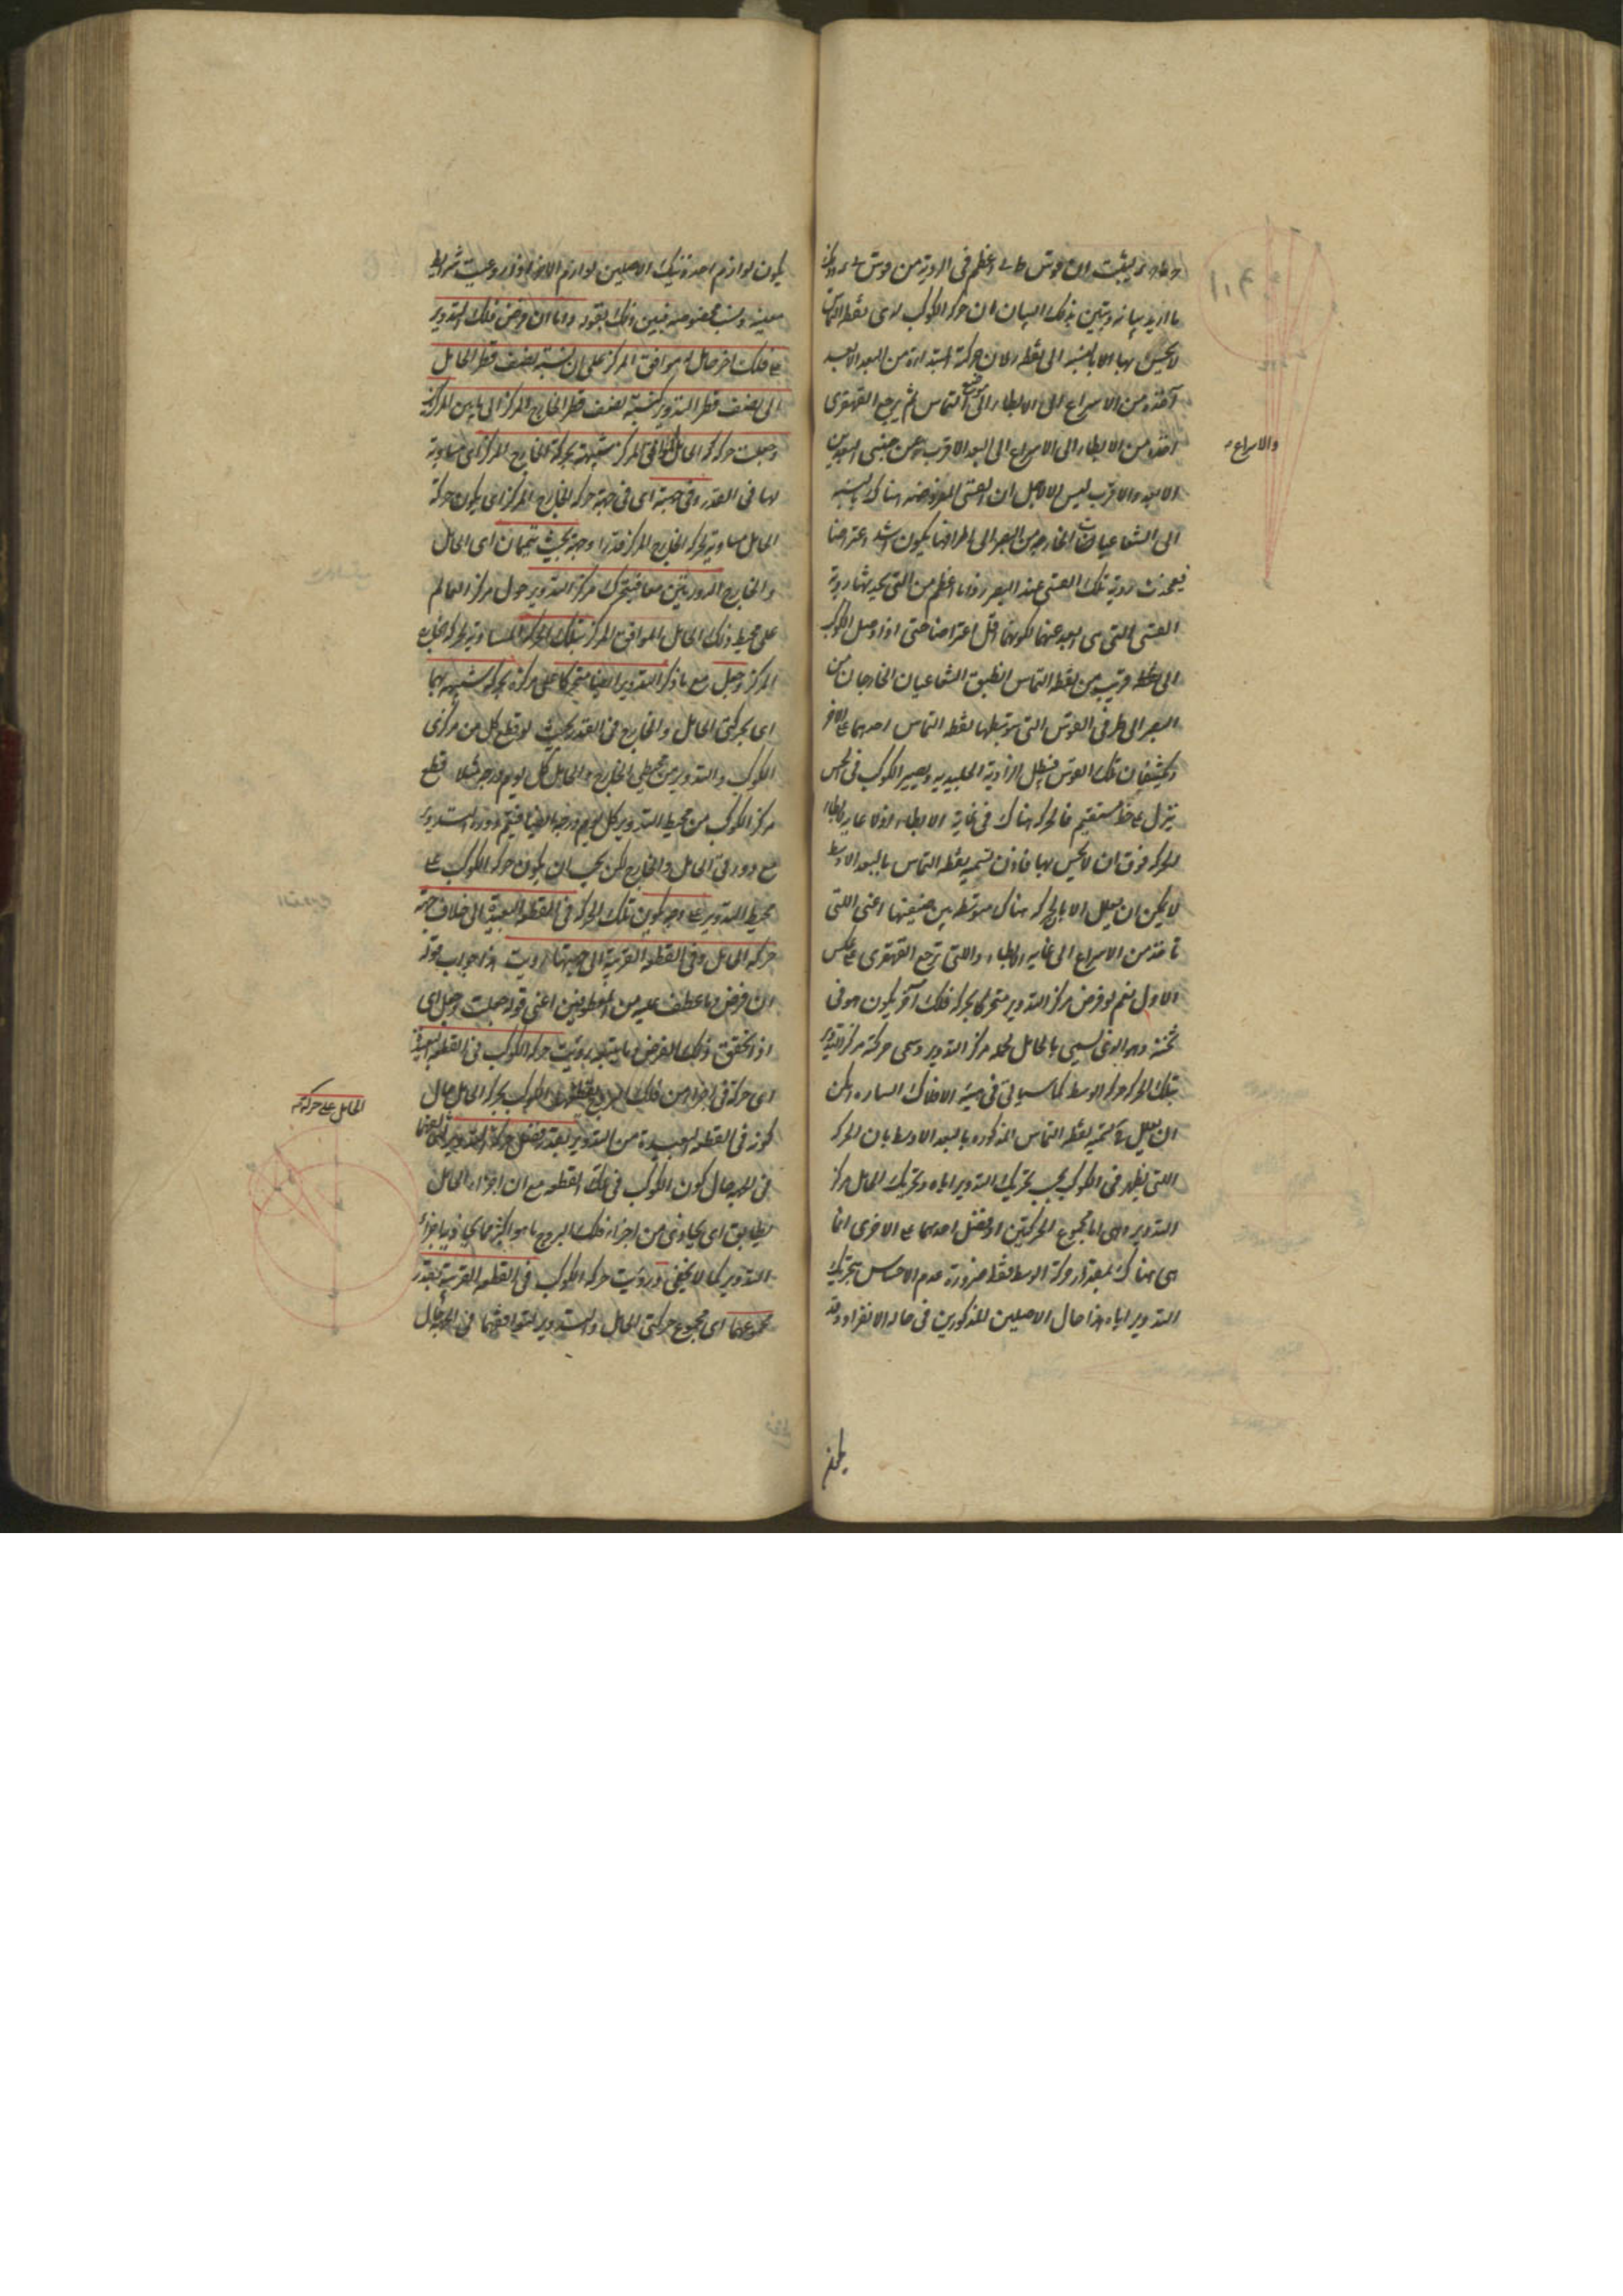 ليثبت ان قوس ط ى اعظم فى الروية من قوس
ما اريد بيانه وتبين بذلك البيان ان حركة الكوكب لدى نقطة التماس
لا يحس بها الا بالنسبة الى نقطة لان حركة ابتداءه من البعد الابعد
آخذه من الاسراع الى الابطاء الى موضع التماس ثم يرجع القهقرى
آخذه من الابطاء الى الاسراع الى البعد الاقرب
والاسراع
الابعد والاقرب ليس الا لاجل ان القسى المفروضة هناك بالنسبة
الى الشعاعيات الخارجة من البصر الى اطرافها يكون اشد اعتراضا
فيحدث روية تلك القسى عند البصر زوايا اعظم من التى يحدثها روية
القسى التى هى ابعد عنها لكونها اقل اعتراضا حتى اذا وصل الكوكب
الى نقطة قريب من نقطة التماس انطبق الشعاعيان الخارجان من
البصر الى طرفى القوس التى يتوسطها نقطة التماس احدهما على الاخر
تلك القوس فيبطل الزاوية الجليدية ويصير الكوكب فى الحس
ينزل على خط مستقيم فالحركة هناك فى غاية الابطاء اذ لا غاية لابطاء
الحركة فوق ان لا يحس بها فاذن تسمية نقطة التماس بالبعد الاوسط
لا يمكن ان يعلل الا بان الحركة هناك متوسطة بين صنفيها اعنى التى
تاخذ من الاسراع الى غاية الابطاء والتى ترجع القهقرى على عكس
الاول نعم لو فرض مركز التدوير متحركا بحركة فلك آخر يكون هو فى
ثخنه وهو الذى يسمى بالحامل لحمله مركز التدوير وسمى حركة مركز التدوير
بتلك الحركة حركة الوسط كما سياتى فى هيئة الافلاك السيارة امكن
ان يعلل تسمية نقطة التماس المذكورة بالبعد الاوسط بان الحركة
التى يظهر فى الكوكب بحسب تحريك التدوير اياه وتحريك الحامل مركز
التدوير اى اما مجموع الحركتين او فضل احدهما على الاخرى انما
هى هناك بمقدار حركة الوسط فقط ضرورة عدم الاحساس بتحريك
التدوير اياه هذا حال الاصلين المذكورين فى حالة الانفراد وقد
يكون
يكون لوازم احد ذينك الاصلين لوازم الاخر اذا روعيت شرايط
معينة ونسب مخصوصة فبين ذلك بقوله واما ان فرض فلك التدوير
على فلك اخر حامل له موافق المركز على ان نسبة نصف قطر الحامل
الى نصف قطر التدوير كنسبة نصف قطر الخارج المركز الى ما بين المركزين
وجعلت حركة الحامل الموافق المركز شبيهة بحركة الخارج المركز اى مساوية
لها فى القدر وفى جهته اى فى جهة حركة الخارج المركز اى يكون حركة
الحامل مساوية لحركة الخارج المركز قدرا وجهة بحيث يتمان اى الحامل
والخارج الدورتين معا فيتحرك مركز التدوير حول مركز العالم
على محيط ذلك الحامل الموافق المركز بتلك الحركة المساوية لحركة الخارج
المركز وجعل مع ما ذكر التدوير ايضا متحركا على مركزه بحركة شبيهة بهما
اى بحركتى الحامل والخارج فى القدر بحيث لو قطع كل من مركزى
الكوكب والتدوير من محيطى الخارج والحامل كل يوم درجة مثلا قطع
مركز الكوكب من محيط التدوير كل يوم درجة ايضا فيتم دورة التدوير
مع دورتى الحامل والخارج لكن يجب ان يكون حركة الكوكب على
محيط التدوير على وجه يكون تلك الحركة فى القطعة البعيدة الى خلاف جهة
حركة الحامل وفى القطعة القريبة الى جهتها رويت هذا جواب قوله
ان فرض وما عطف عليه من المعطوفين اعنى قوله جعلت وجعل اى
اذا تحقق ذلك الفرض وما يتبعه رويت حركة الكوكب فى القطعة البعيدة
اى حركة فى اجزاء من فلك البروج الكوكب بحركة الحامل حال
الحامل على حركة
كونه فى القطعة البعيدة من التدوير بقدر فضل حركة
فى الجهة حال كون الكوكب فى تلك القطعة مع ان اجزاء الحامل
يطابق اى يحاذى من اجزاء فلك البروج ما هو اكثر مما يحاذيها اجزاء
التدوير كما لا يخفى ورويت حركة الكوكب فى القطعة القريبة بقدر
مجموعهما اى مجموع حركتى الحامل والتدوير لتوافقهما فى الجهة حال